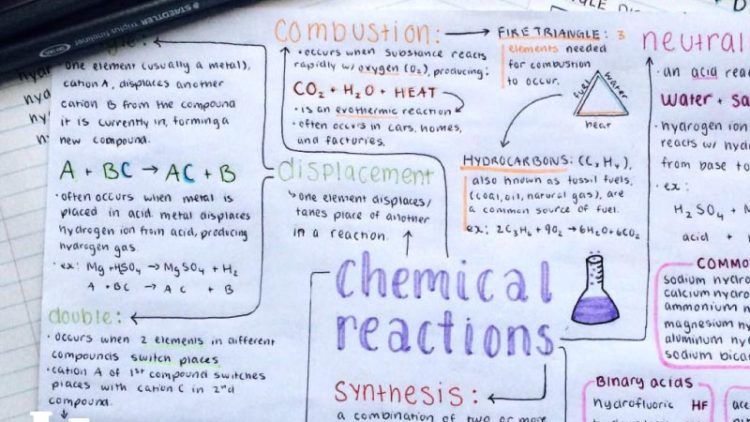 STAEDTLER triplus fineliner
combustion:
• occurs when substance reacts
rapidly w/ oxygen (O₂), producing:
CO₂ + H₂O + HEAT
• is an exothermic reaction
• often occurs in cars, homes,
and factories.
FIRE TRIANGLE: 3
elements needed
for combustion
to occur.
fuel
water
heat
HYDROCARBONS: (CₓHᵧ),
also known as fossil fuels,
(coal, oil, natural gas), are
a common source of fuel.
ex: 2C₃H₆ + 9O₂ → 6H₂O + 6CO₂
one element (usually a metal),
cation A, displaces another
cation B from the compound
it is currently in, forming a
new compound.
A + BC → AC + B
• often occurs when metal is
placed in acid. metal displaces
hydrogen ion from acid, producing
hydrogen gas.
• ex: Mg + HSO₄ → MgSO₄ + H₂
A + BC → AC + B
double:
• occurs when 2 elements in different
compounds switch places
• cation A of 1st compound switches
places with cation C in 2nd
compound.
displacement
↳ one element displaces/
takes place of another
in a reaction.
chemical
reactions
synthesis:
a combination of two or more
neutrali
• an acid reac
water + sa
• hydrogen ion
reacts w/ hyd
from base to
• ex:
H₂SO₄ + M
acid +
COMMO
sodium hydro
calcium hydro
ammonium h
magnesium hy
aluminum hyd
sodium bica
Binary acids
hydrofluoric HF